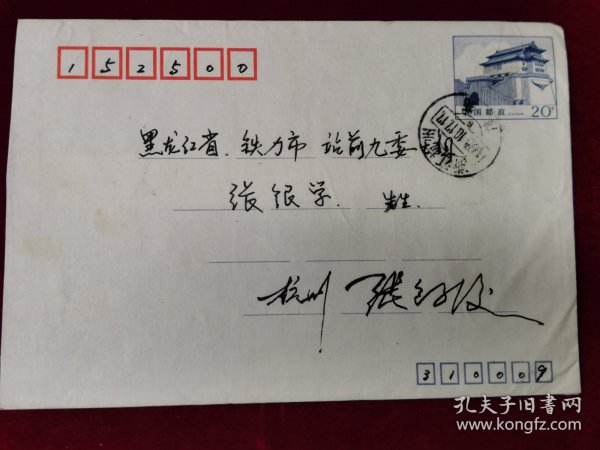 152500
中国邮政
20分
黑龙江省.铁力市 站前九委
张银学. 先生.
杭州 张
310009
孔夫子旧书网
www.kongfz.com